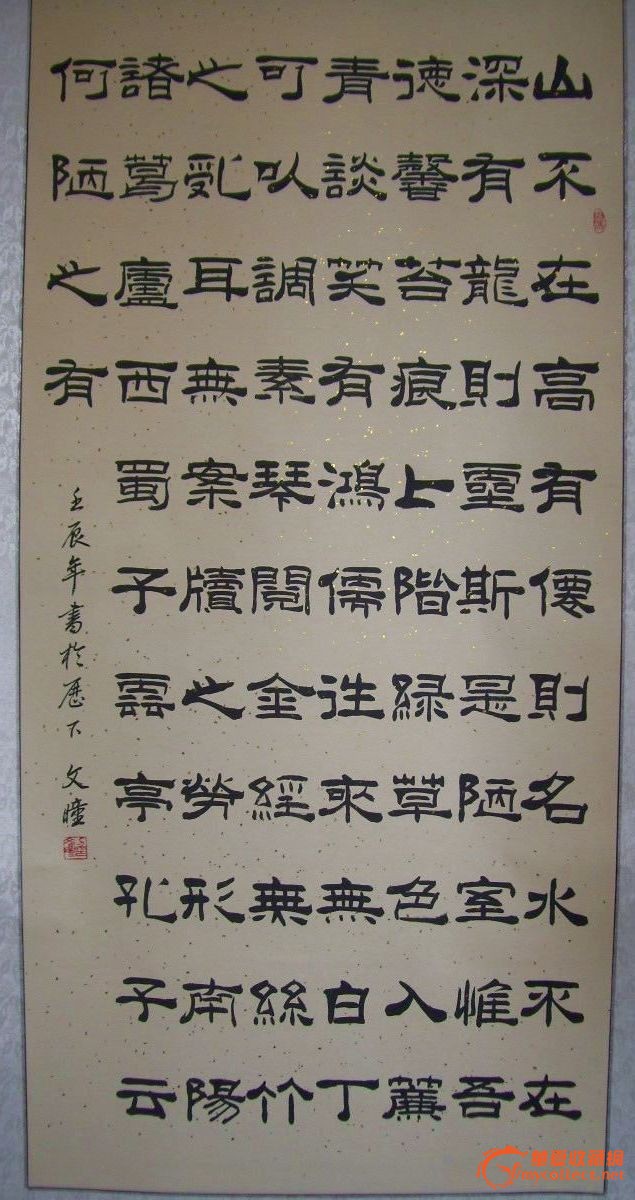 山不在高有僊則名水不在
深有龍則靈斯是陋室惟吾
徳馨苔痕上階緑草色入簾
青談笑有鴻儒往來無白丁
可以調素琴閱金經無絲竹
之亂耳無案牘之勞形南陽
諸葛廬西蜀子雲亭孔子云
何陋之有
壬辰年書於歷下 文瞳